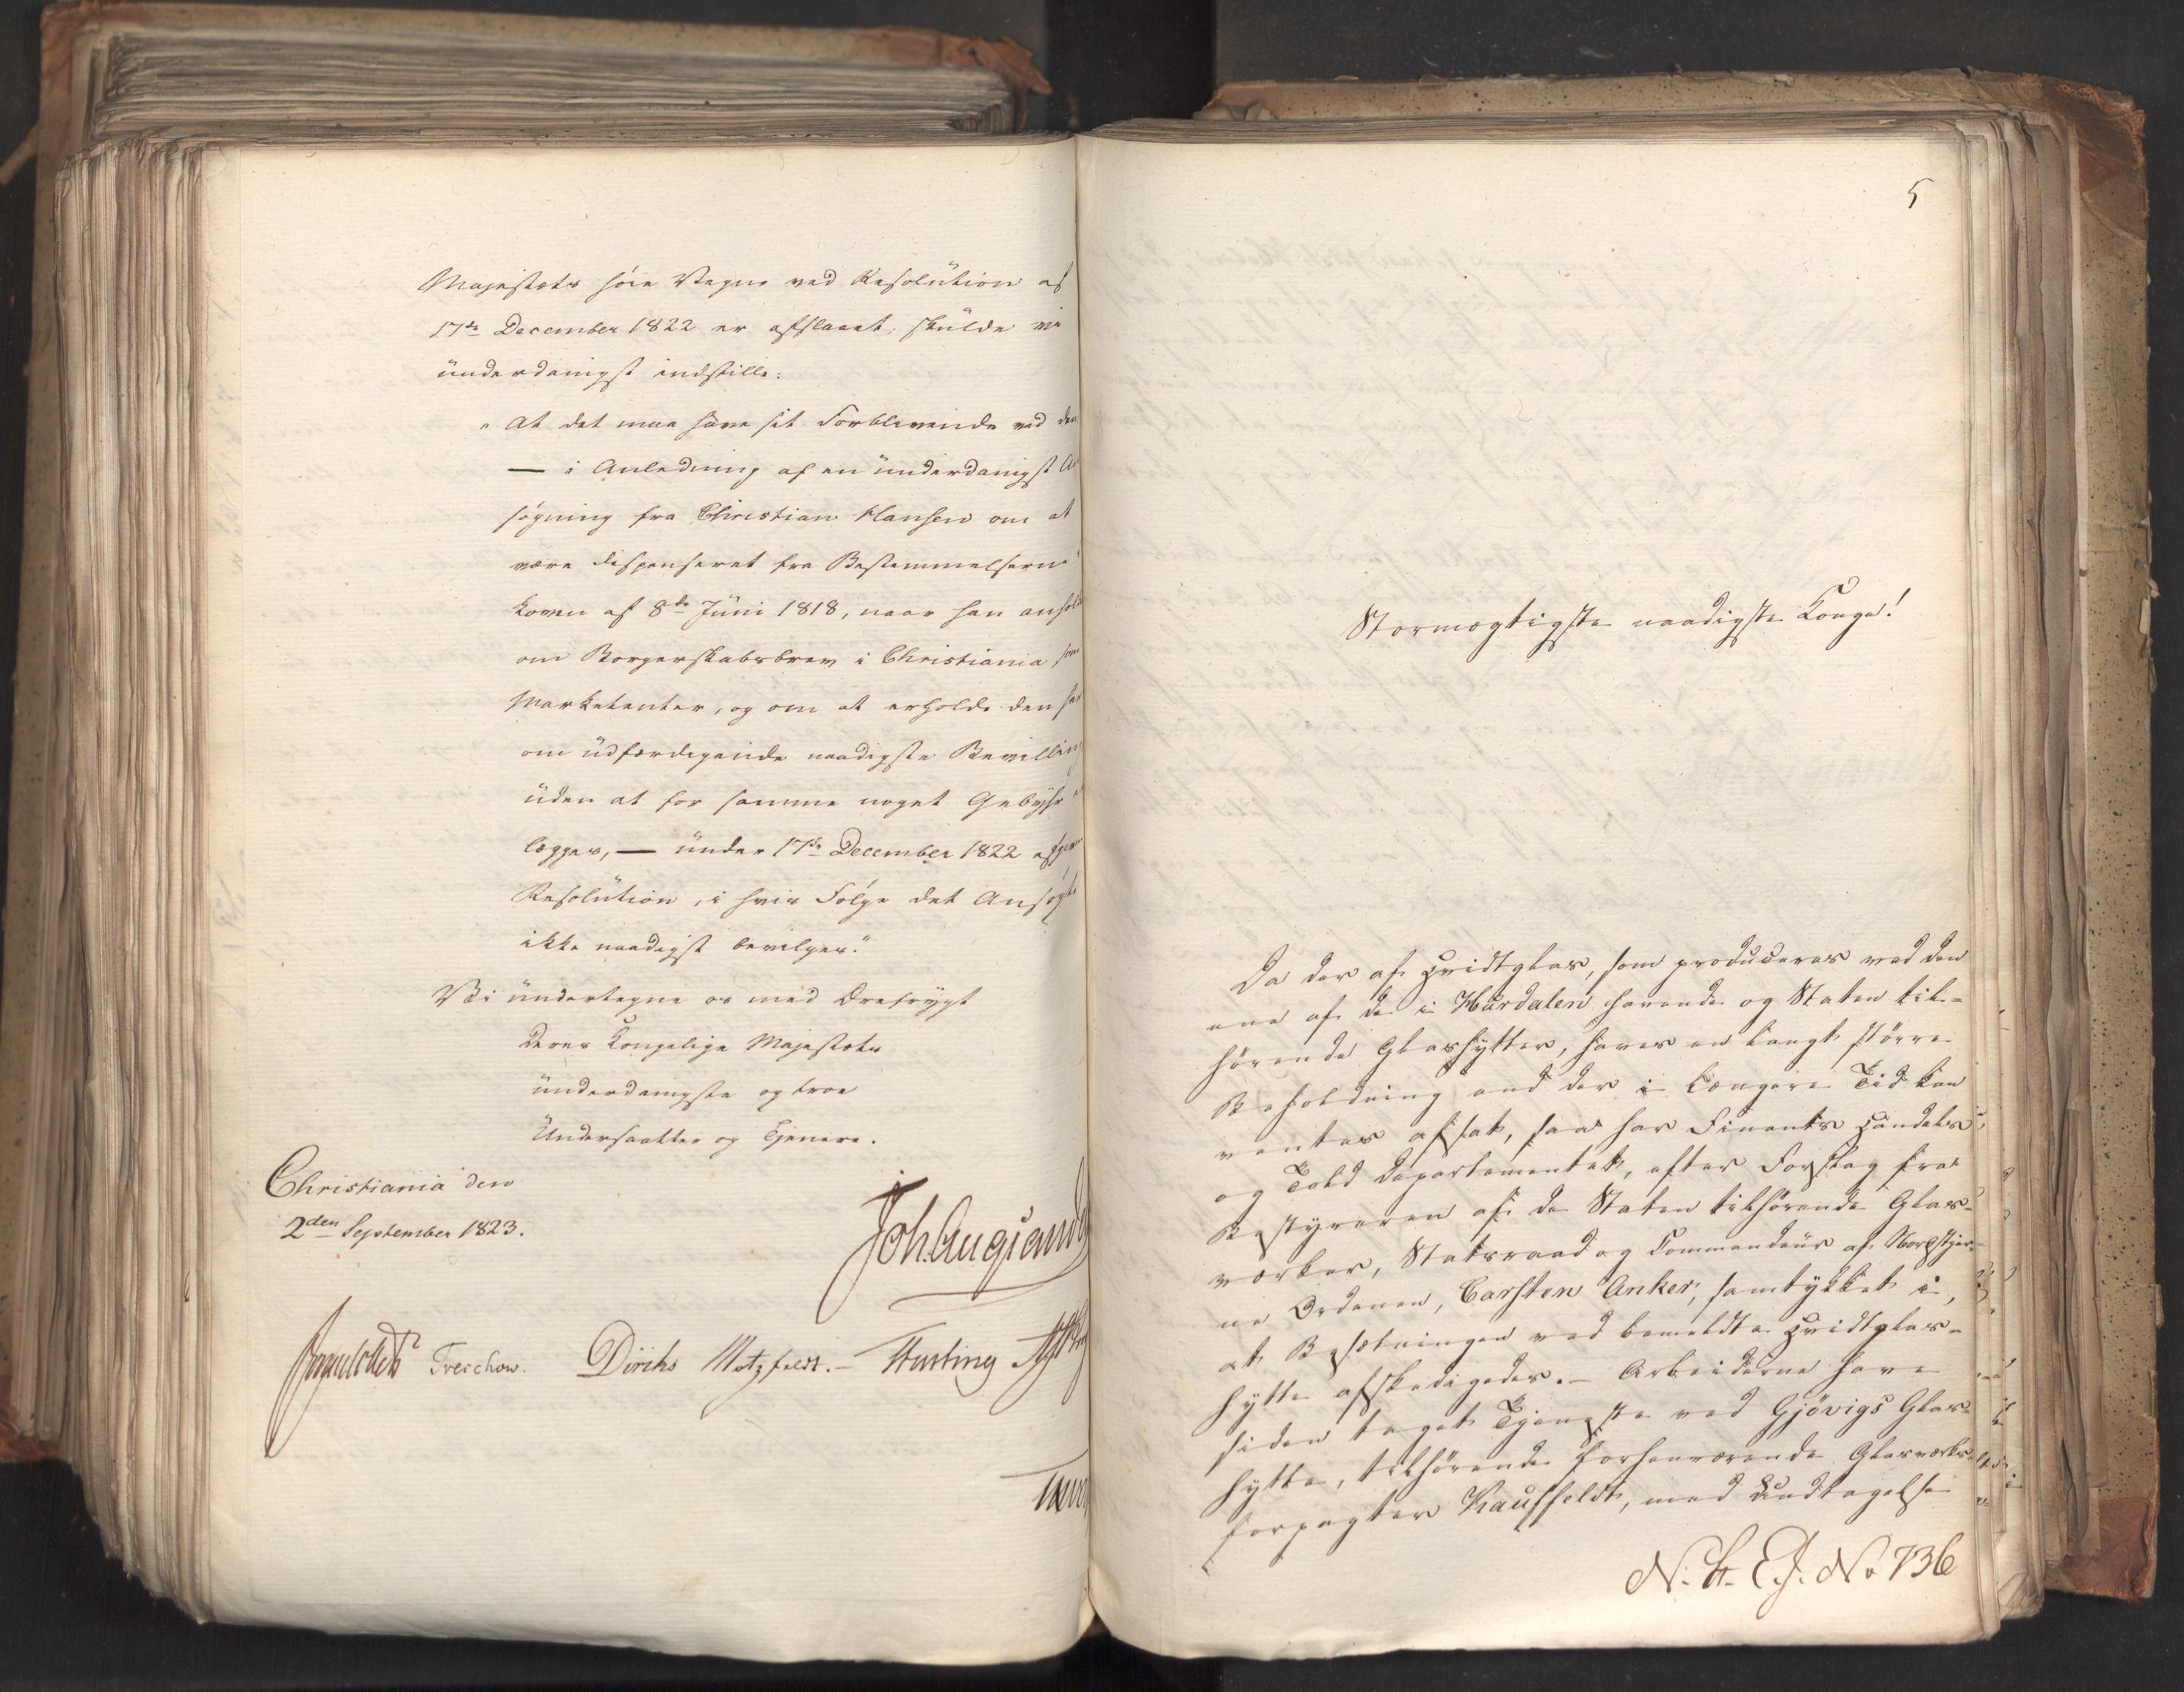 Majestæts høie Vegne ved Resolution af
17de December 1822 er afslaaet, skulde vi
underdanigst indstille:
„At det maa have sit Forblivende ved den
— i Anledning af en underdanigst An
søgning fra Christian Hansen om at
være dispenseret fra Bestemmelserne
Loven af 8de Juni 1818, naar han anhol
om Borgerskabsbrev i Christiania som
Marketenter, og om at erholde den her
om udfærdigende naadigste Bevilling
uden at for samme noget Gebyhr
lægges, — under 17de December 1822 afgivne
Resolution, i hvis Følge det Ansøgte
ikke naadigst bevilges."
Vi undertegne os med Ærefrygt
Deres Kongelige Majestæts
underdanigste og troe
Undersaatter og Tjenere.
Christiania den
2den September 1823.
Joh. Aug. Sand
Treschow. Diriks Motzfeldt. –
5
Stormægtigste naadigste Konge!
Da der af Hvidtglas, som produceres ved den
ene af de i Hurdalen havende og Staten til-
hørende Glashytter, haves en langt større
Beholdning end der i længere Tid kan
ventes afsat, saa har Finants Handels
og Told Departementet, efter Forslag fra
Bestyreren af de Staten tilhørende Glas-
værker, Statsraad og Commandeur af Nordstjer-
ne Ordenen, Carsten Anker, samtykket i,
at Besætningen ved bemeldte Hvidtglas-
hytte afskedigedes. – Arbeiderne have
siden taget Tjeneste ved Gjövigs Glas-
hytte, tilhørende forhenværende Glasværks-
forpagter Kauffeldt, med Undtagelse
No 736